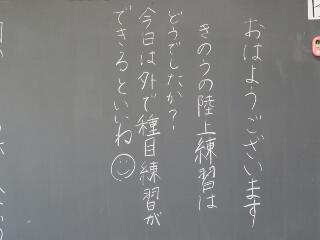 おはようございます
きのうの陸上練習は
どうでしたか？
今日は外で種目練習が
できるといいね